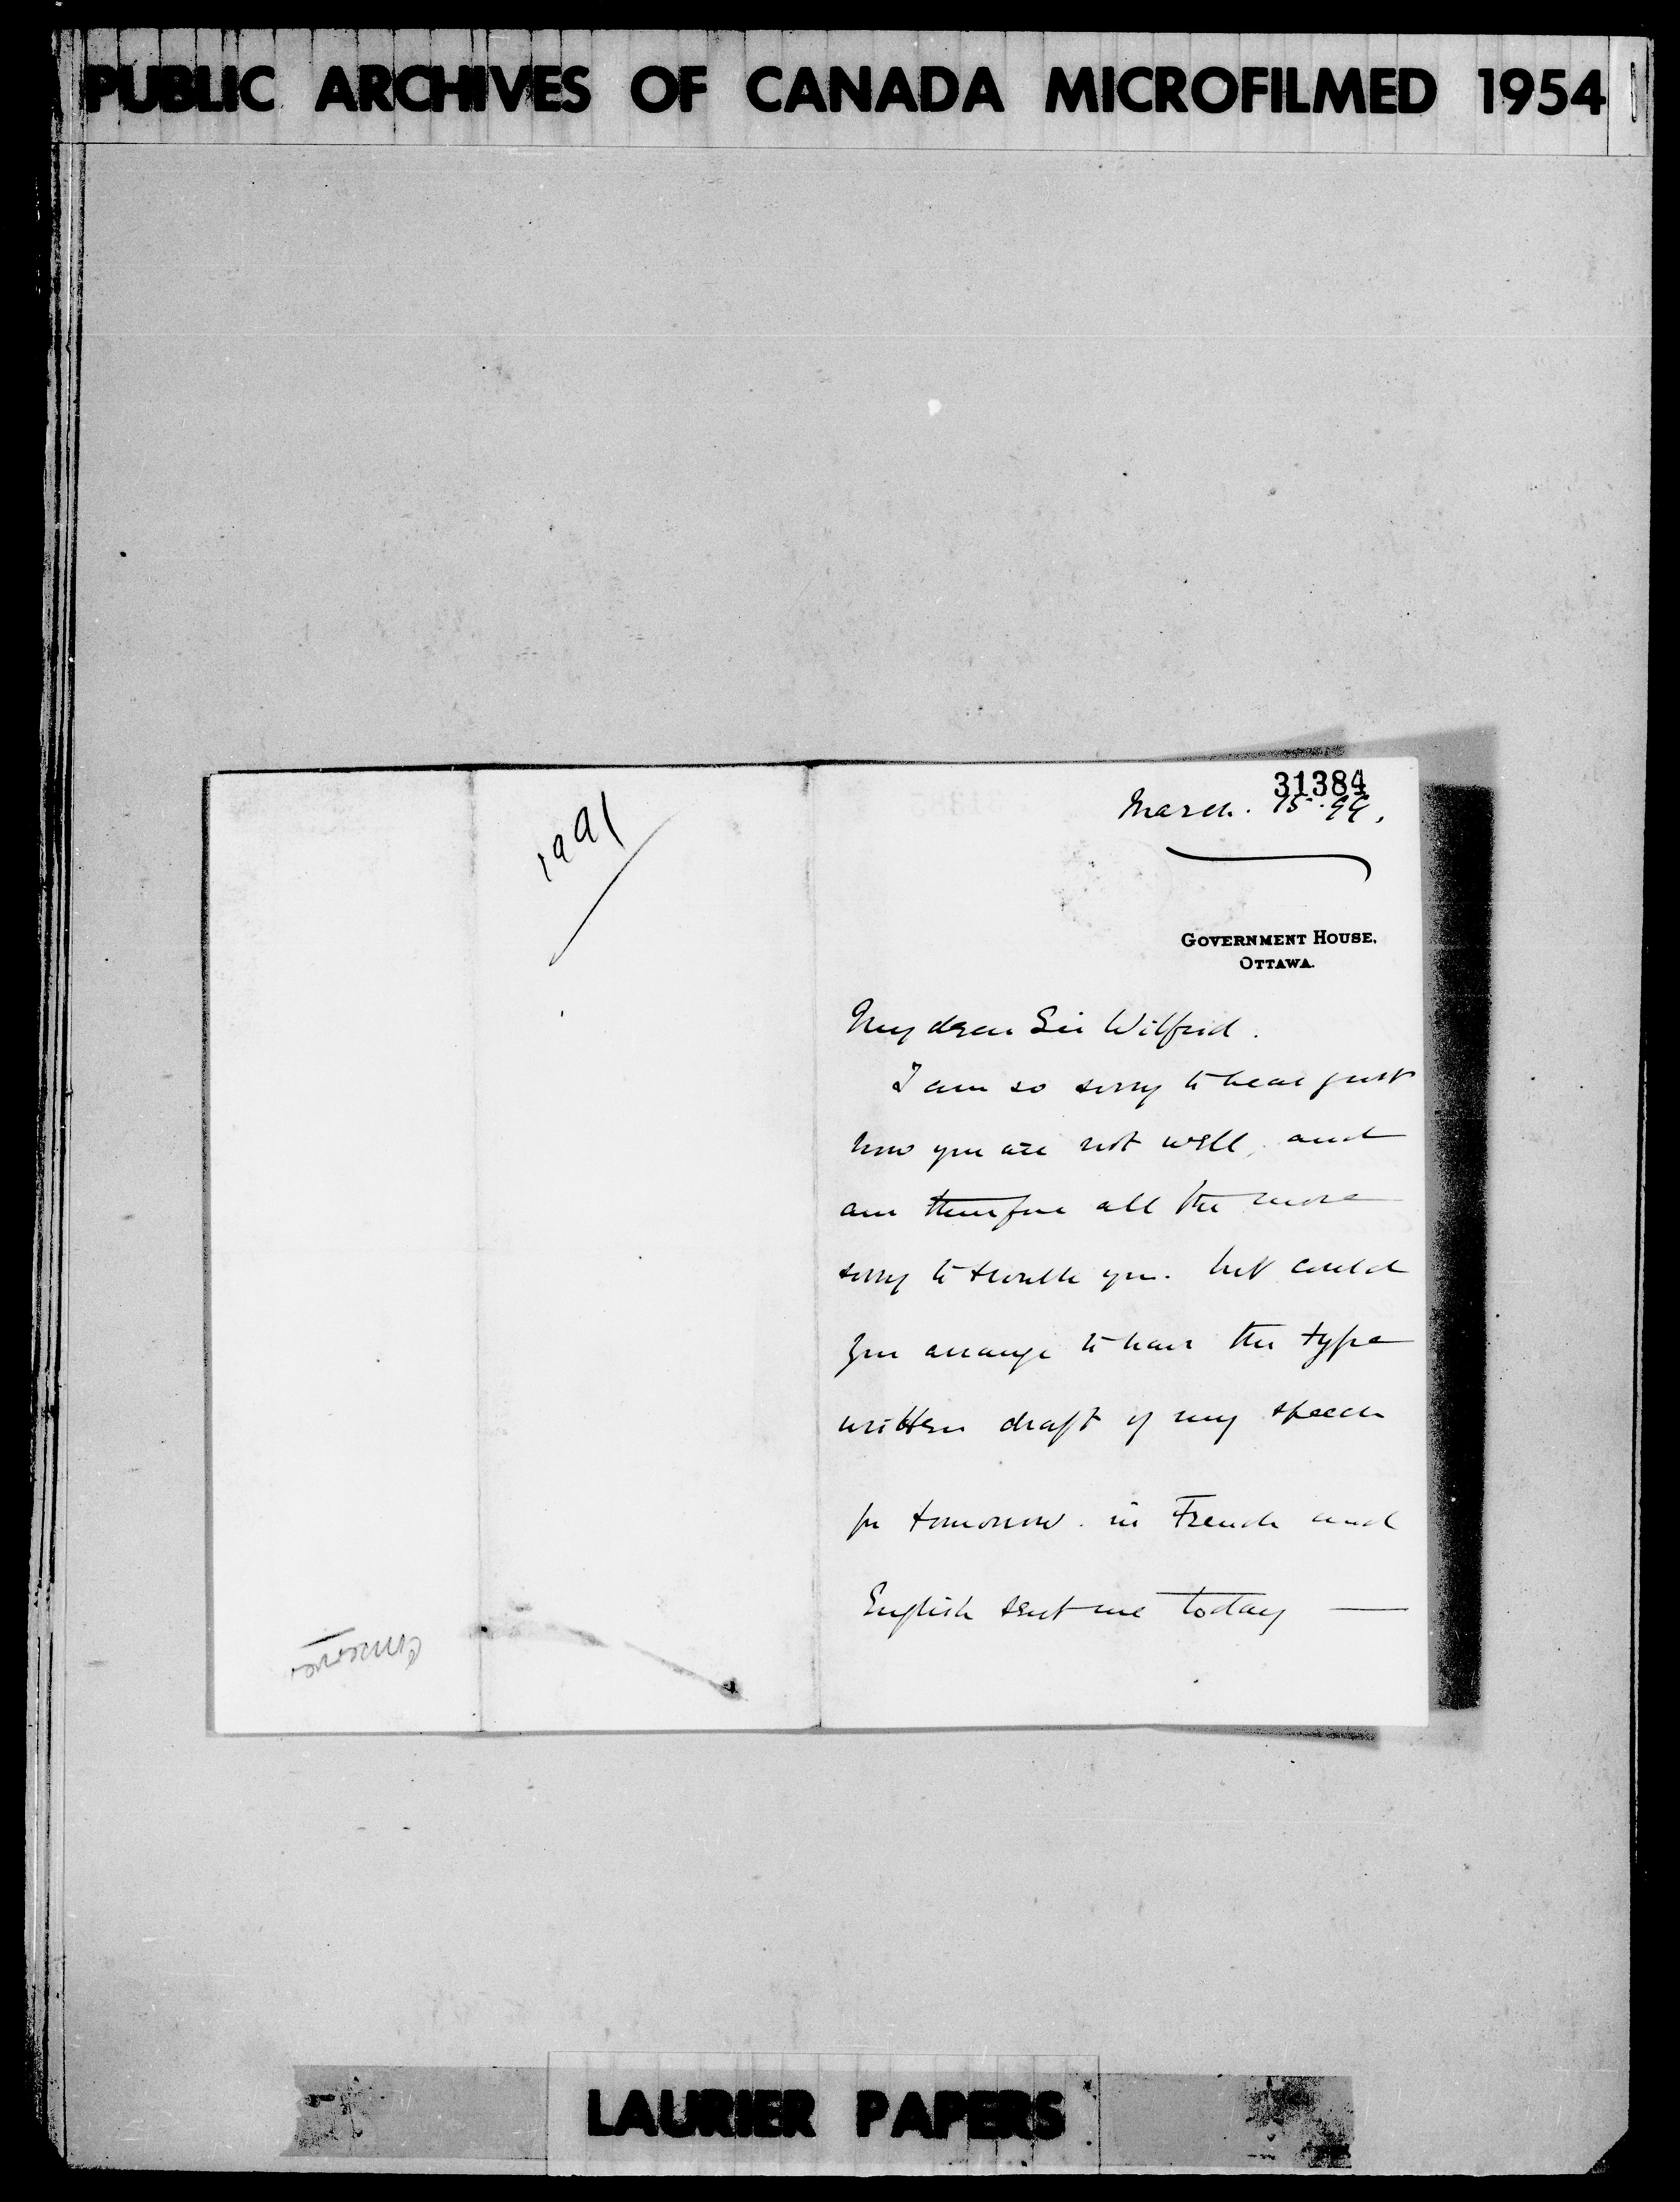 PUBLIC ARCHIVES OF CANADA MICROFILMED 1954
31384
March. 15. 99.
GOVERNMENT HOUSE,
OTTAWA.
My dear Sir Wilfrid.
I am so sorry to hear just
how you are not well, and
am therefore all the more
sorry to trouble you. but could
you arrange to have the type
written draft of my speech
for tomorrow. in French and
English sent me today —
LAURIER PAPERS